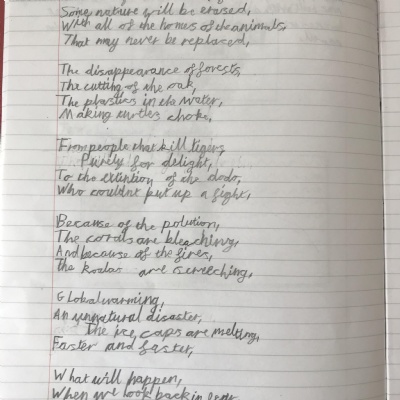 Some nature will be erased,
With all of the homes of the animals,
That may never be replaced,
The disappearance of forests,
The cutting of the oak,
The plastics in the water,
Making turtles choke,
From people that kill tigers,
Purely for delight,
To the extintion of the dodo,
Who couldnt put up a fight,
Because of the polution,
The corals are bleaching,
And because of the fires,
the koalas are screeching,
Global warming,
An unnatural disaster,
The ice caps are melting,
Faster and faster,
What will happen,
When we look back in